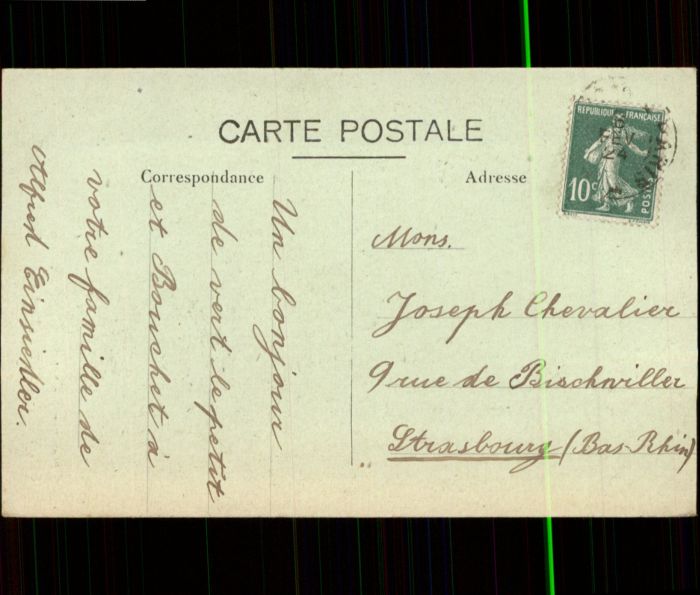 CARTE POSTALE
Correspondance
Adresse
REPUBLIQUE FRANÇAISE
10c
POSTES
Un bonjour
de vert le petit
et Bouchet à
votre famille de
Alfred Einsiedler.
Mons.
Joseph Chevalier
9 rue de Bischwiller
Strasbourg (Bas-Rhin)